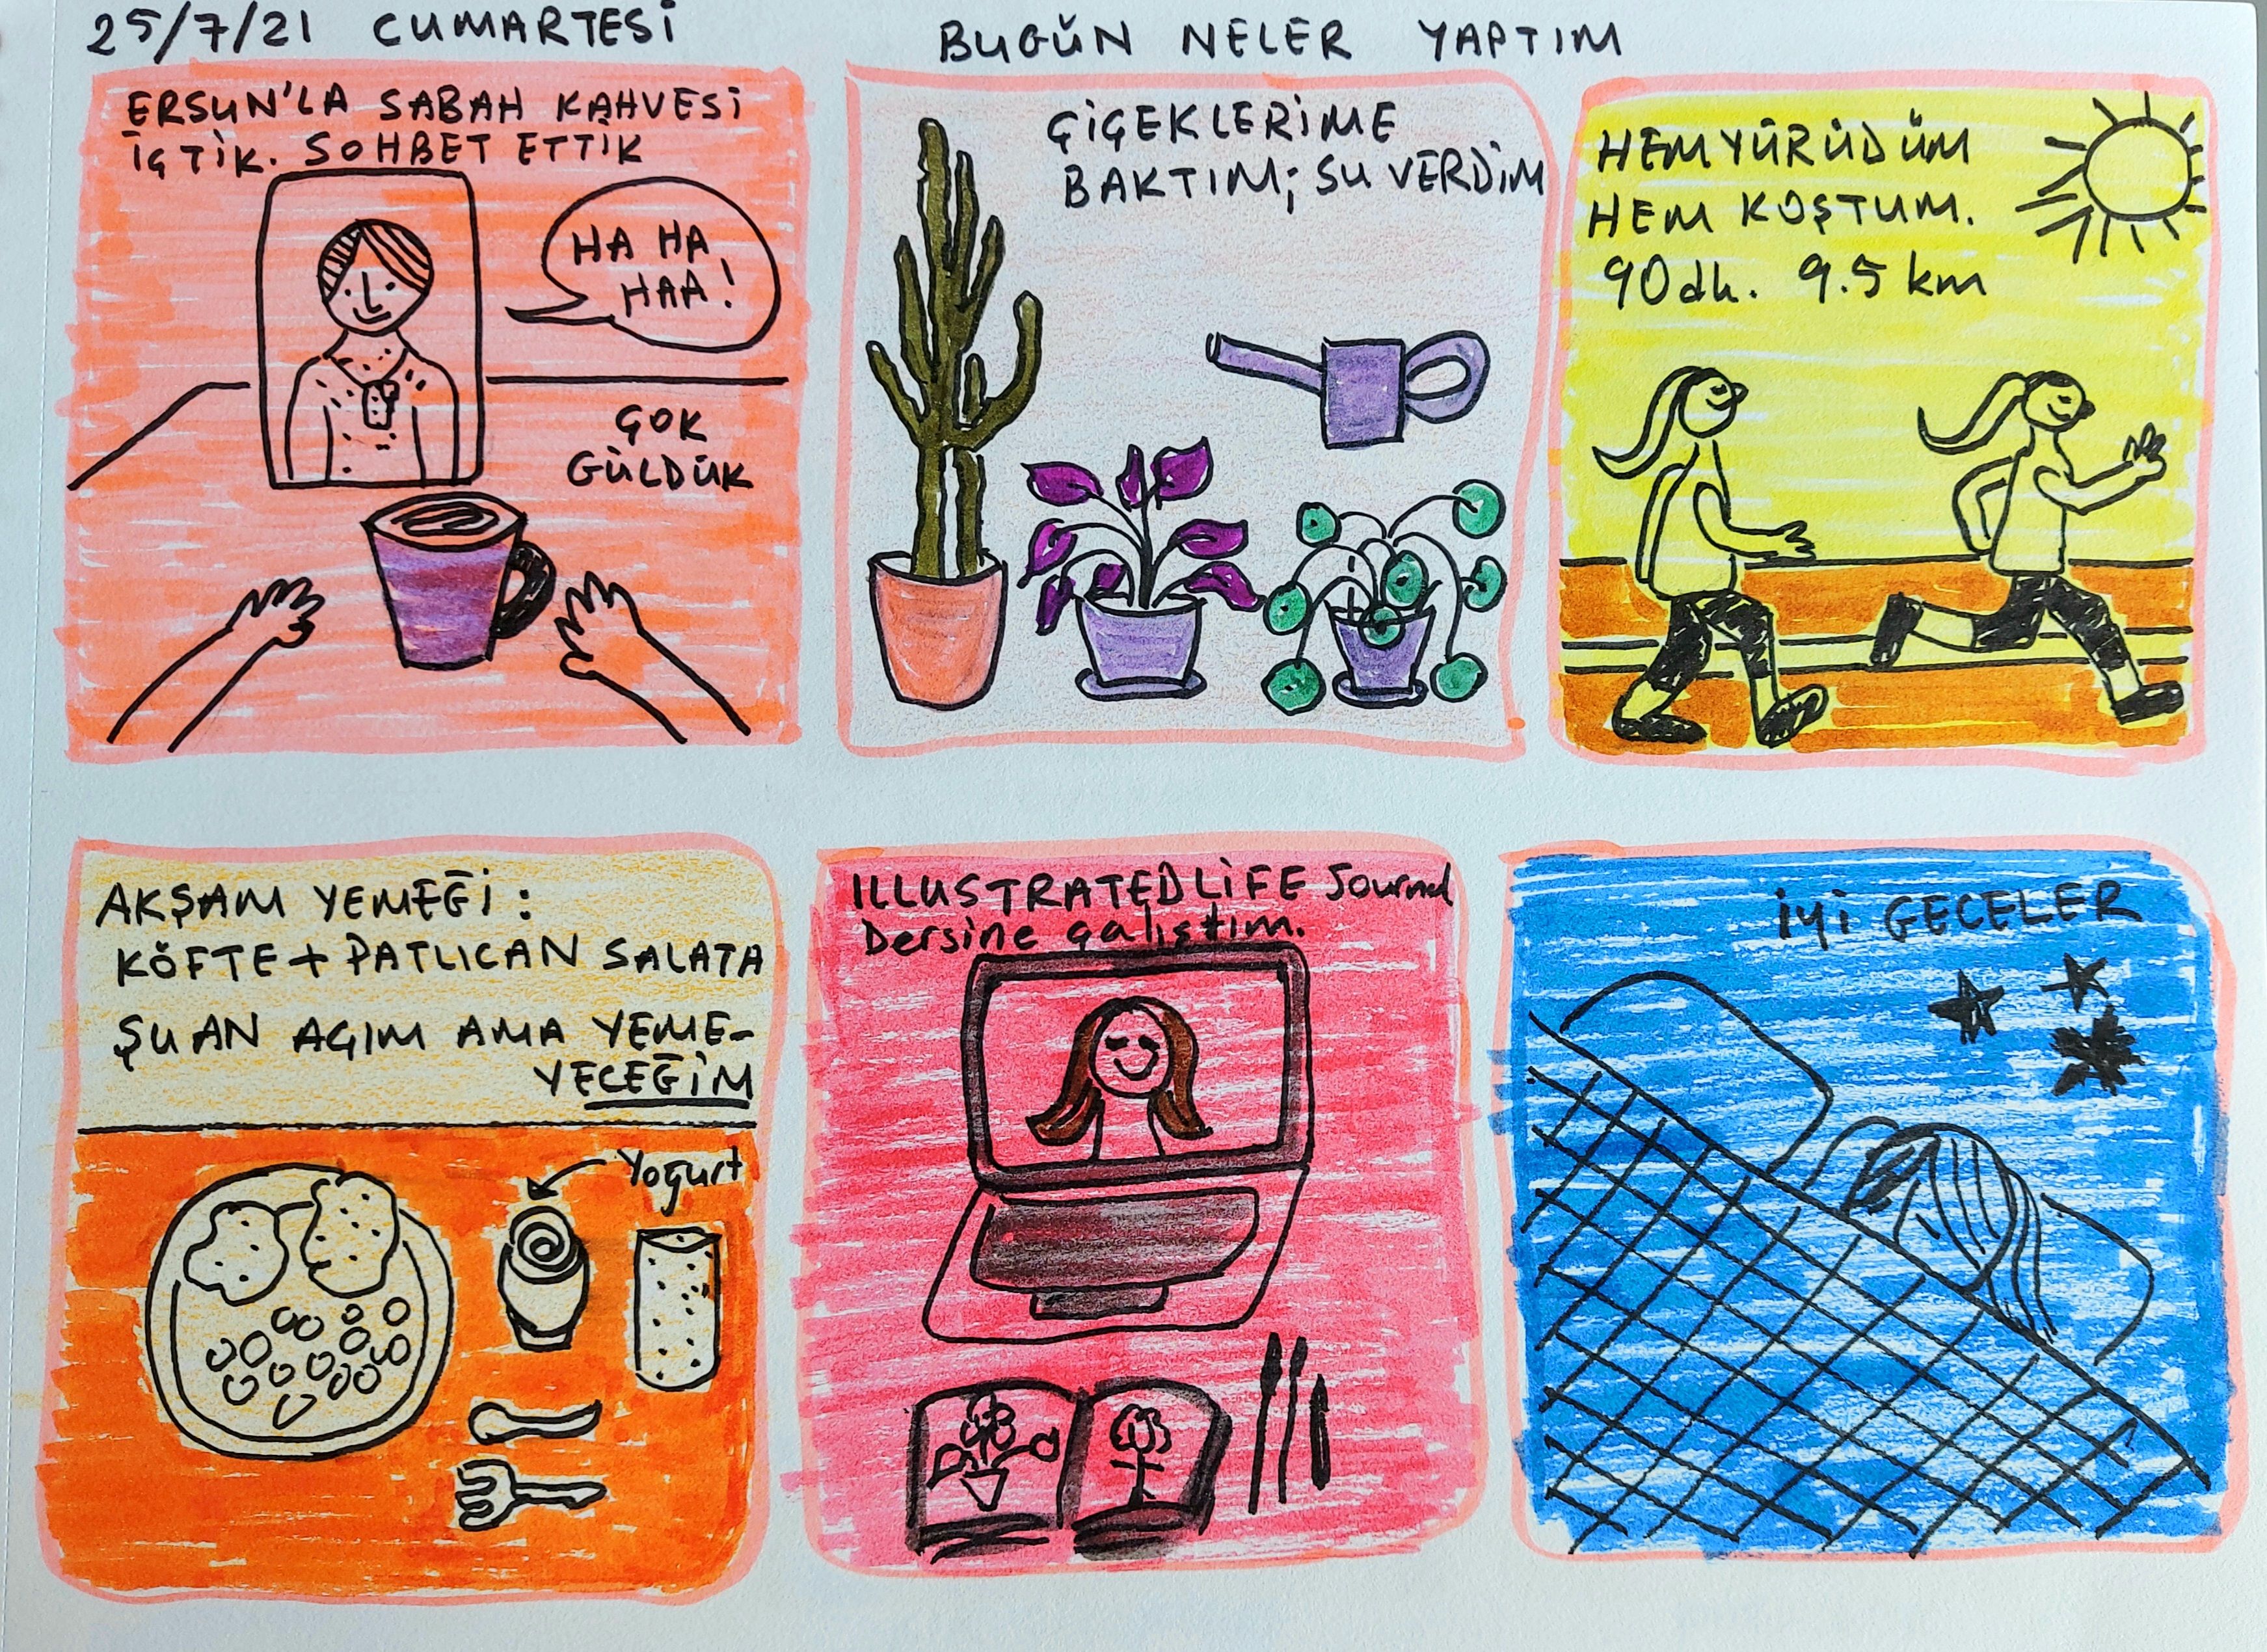 25/7/21 CUMARTESİ
BUGÜN NELER YAPTIM
ERSUN'LA SABAH KAHVESİ
İÇTİK. SOHBET ETTİK
HA HA
HAA!
ÇOK
GÜLDÜK
ÇİÇEKLERİME
BAKTIM; SU VERDİM
HEM YÜRÜDÜM
HEM KOŞTUM.
90dk. 9.5 km
AKŞAM YEMEĞİ:
KÖFTE + PATLICAN SALATA
ŞU AN AÇIM AMA YEME-
YECEĞİM
Yoğurt
ILLUSTRATED LİFE Journal
Dersine çalıştım.
İyi GECELER